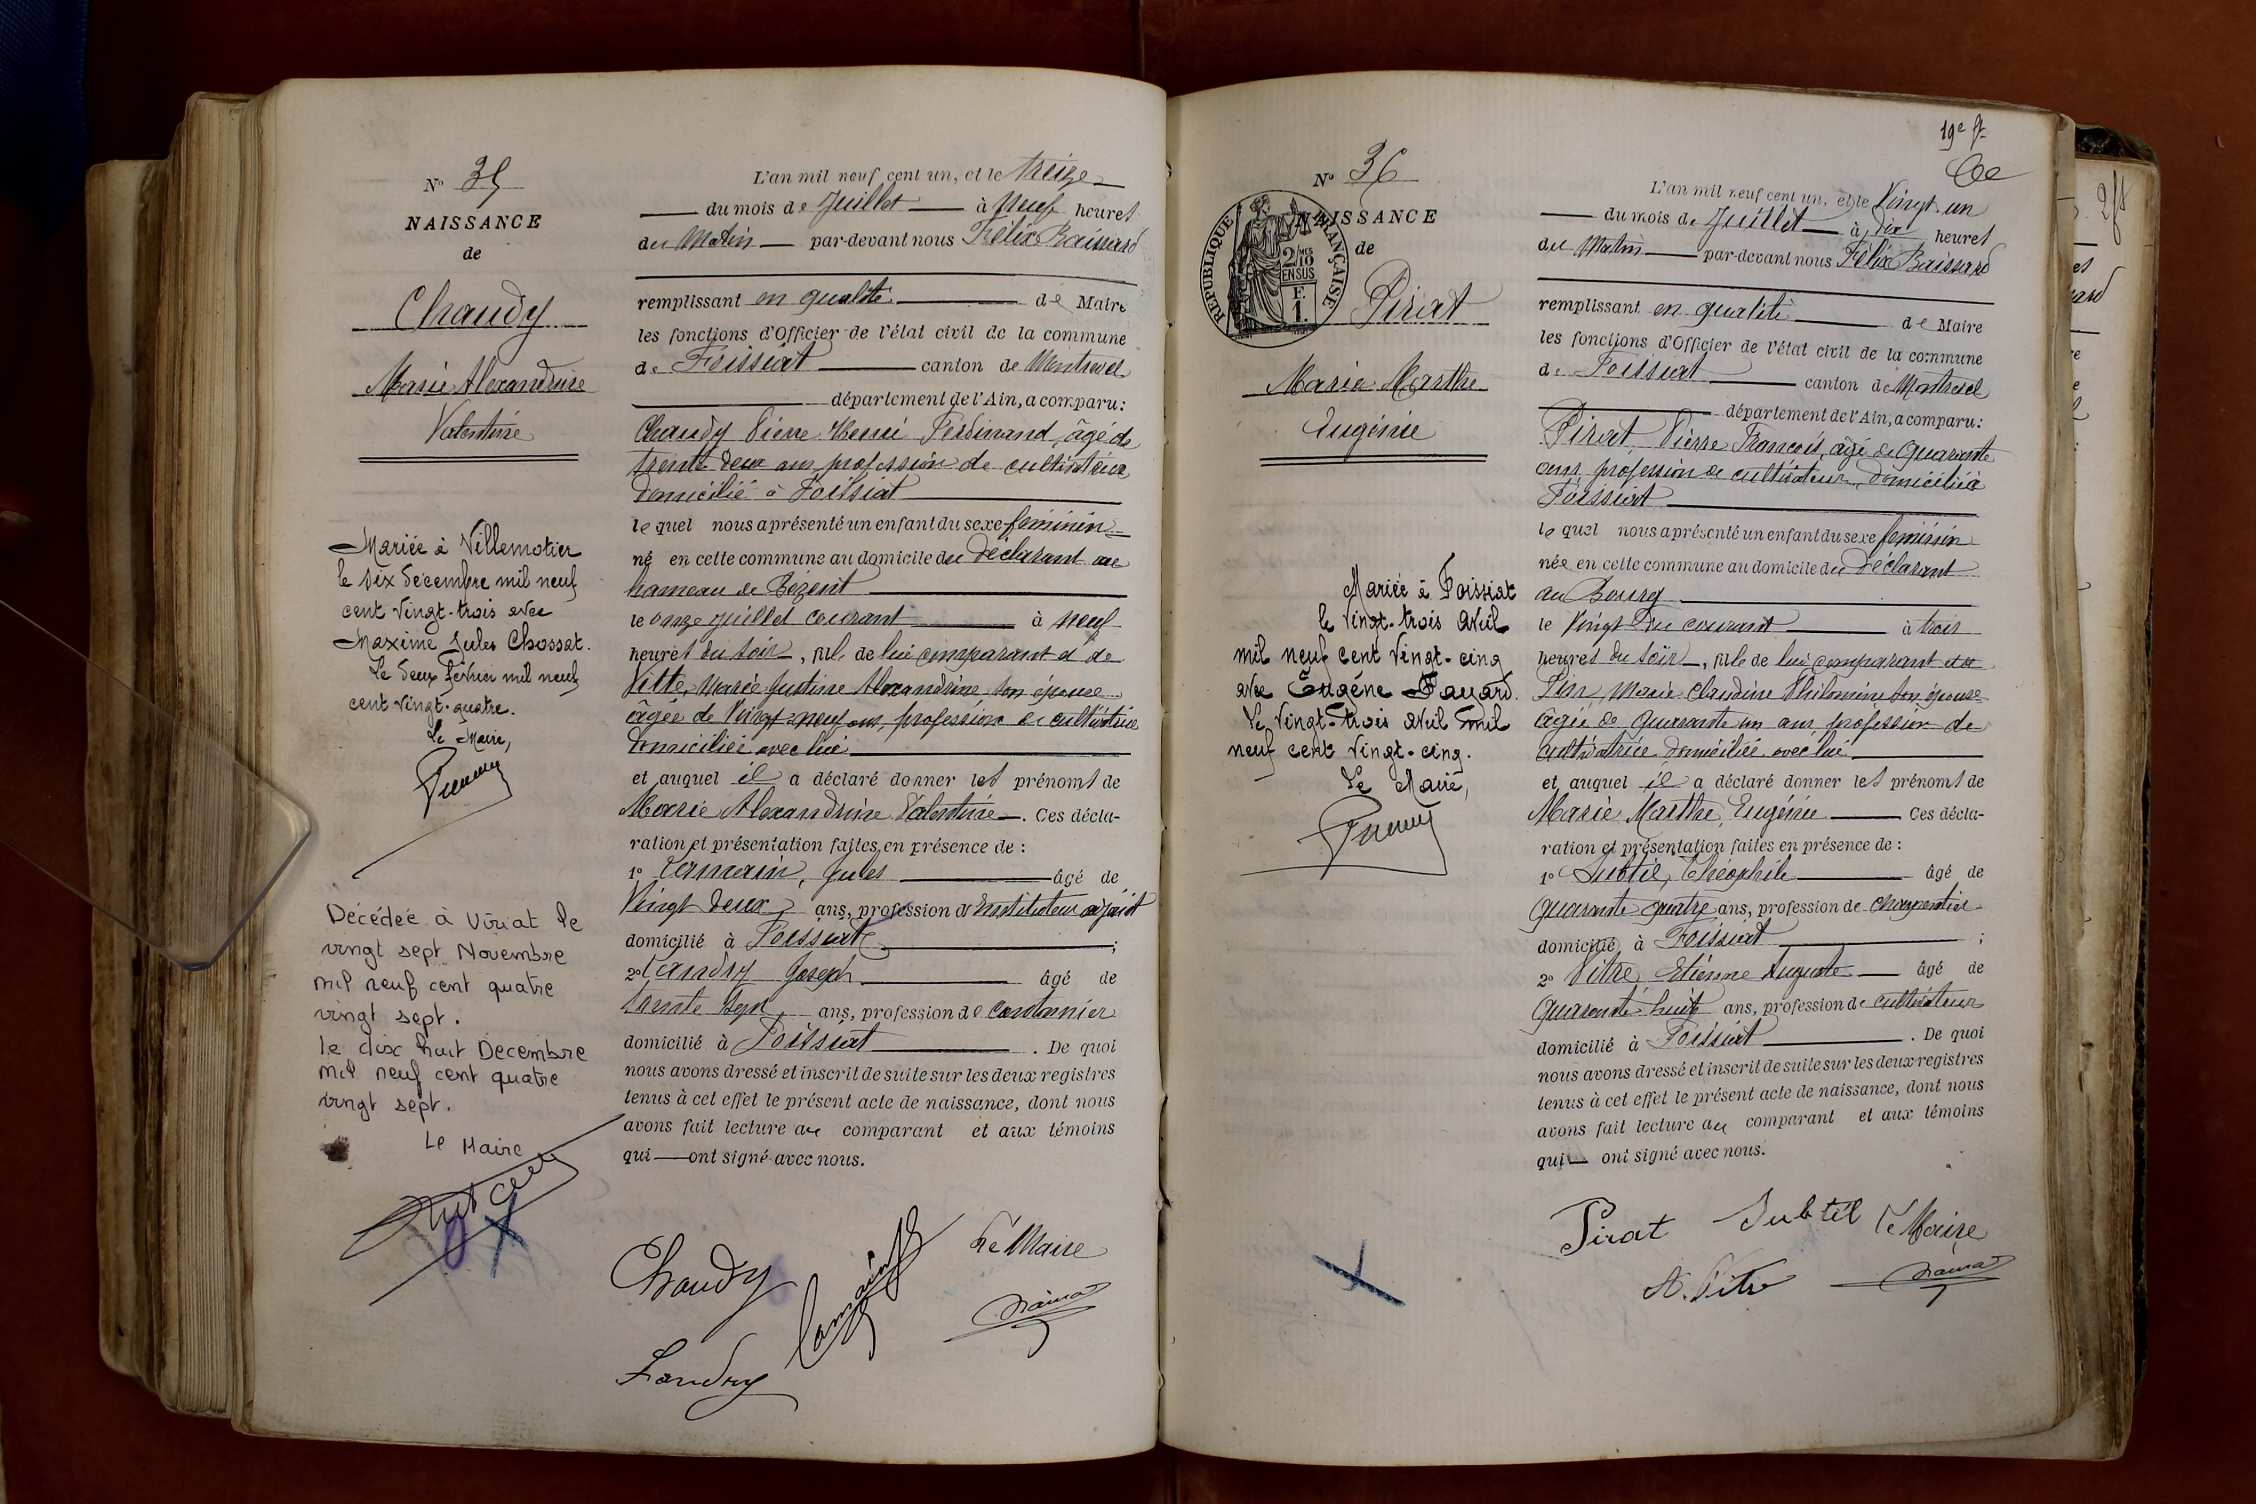 N° 35
NAISSANCE
de
Chaudy
Marie Alexandrine
Valentine
Mariée à Villemotier
le six décembre mil neuf
cent vingt-trois avec
Maxime Jules Chossat.
Le deux février mil neuf
cent vingt-quatre.
Le Maire,
Décédée à Viriat le
vingt sept Novembre
mil neuf cent quatre
vingt sept.
le dix huit Décembre
mil neuf cent quatre
vingt sept.
Le Maire
L'an mil neuf cent un, et le treize
du mois de Juillet à neuf heures
du Matin par-devant nous Félix Raissard
remplissant en qualité de Maire
les fonctions d'Officier de l'état civil de la commune
de Foissiat canton de Montrevel
département de l'Ain, a comparu :
Chaudy Pierre Henri Ferdinand, âgé de
trente deux ans, profession de cultivateur
domicilié à Foissiat
lequel nous a présenté un enfant du sexe féminin
né en cette commune au domicile du déclarant au
hameau de Bézent
le onze juillet courant à neuf
heures du soir, fille de lui comparant et de
Vitte, Marie Justine Alexandrine son épouse
âgée de Vingt neuf ans, profession de cultivatrice
domiciliée avec lui
et auquel il a déclaré donner les prénoms de
Marie Alexandrine Valentine. Ces décla-
ration et présentation faites en présence de :
1° Jules âgé de
Vingt deux ans, profession d'Instituteur adjoint
domicilié à Foissiat ;
2° Landry Joseph âgé de
trente sept ans, profession de cantonnier
domicilié à Foissiat. De quoi
nous avons dressé et inscrit de suite sur les deux registres
tenus à cet effet le présent acte de naissance, dont nous
avons fait lecture au comparant et aux témoins
qui ont signé avec nous.
Chaudy
Le Maire
Landry
19e f.
N° 36
NAISSANCE
de
REPUBLIQUE FRANÇAISE
2/10 MES
EN SUS
F.
1.
Pirat
Marie Marthe
Eugénie
Mariée à Foissiat
le vingt-trois avril
mil neuf cent vingt-cinq
avec Eugène Favard.
Le vingt-trois avril mil
neuf cent vingt-cinq.
Le Maire,
L'an mil neuf cent un, et le Vingt un
du mois de Juillet à dix heures
du Matin par-devant nous Félix Raissard
remplissant en qualité de Maire
les fonctions d'Officier de l'état civil de la commune
de Foissiat canton de Montrevel
département de l'Ain, a comparu :
Pirat, Pierre François, âgé de Quarante
ans, profession de cultivateur, domicilié à
Foissiat
lequel nous a présenté un enfant du sexe féminin
née en cette commune au domicile du déclarant
au Bourg
le Vingt du courant à trois
heures du soir, fille de lui comparant et de
Pin, Marie Claudine Philomène son épouse
âgée de Quarante un ans, profession de
cultivatrice domiciliée avec lui
et auquel il a déclaré donner les prénoms de
Marie Marthe Eugénie Ces décla-
ration et présentation faites en présence de :
1° Subtil, Théophile âgé de
Quarante quatre ans, profession de charpentier
domicilié à Foissiat ;
2° Vitte, Etienne Auguste âgé de
Quarante huit ans, profession de cultivateur
domicilié à Foissiat. De quoi
nous avons dressé et inscrit de suite sur les deux registres
tenus à cet effet le présent acte de naissance, dont nous
avons fait lecture au comparant et aux témoins
qui ont signé avec nous.
Pirat Subtil Le Maire